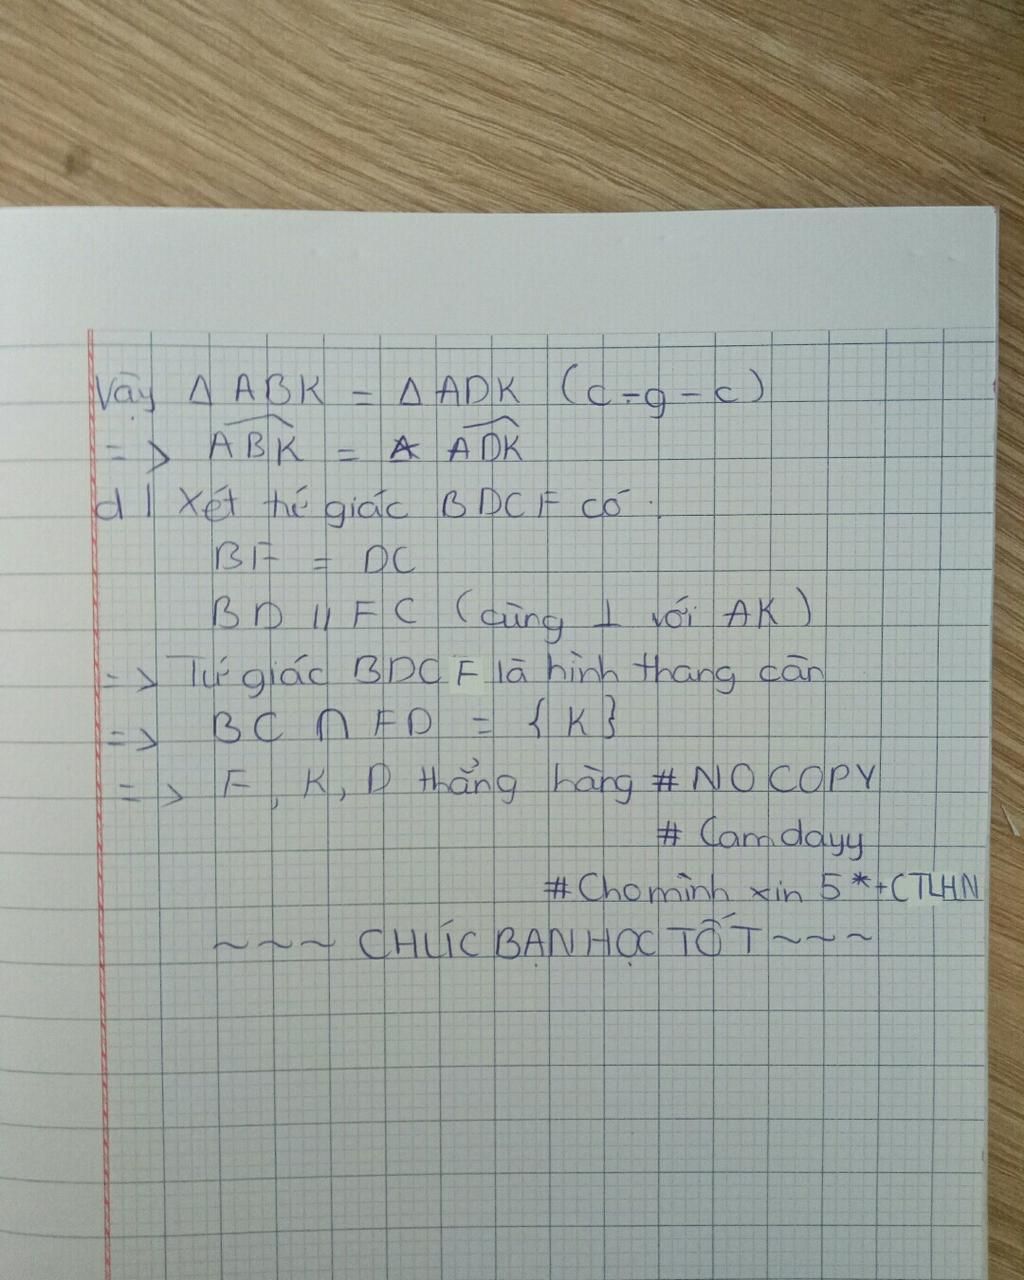 Vậy Δ ABK = Δ ADK (c-g-c)
=> ABK = A ADK
d| Xét tứ giác BDCF có:
BF = DC
BD // FC (cùng ⊥ với AK)
=> Tứ giác BDCF là hình thang cân
=> BC ∩ FD = {K}
=> F, K, D thẳng hàng #NOCOPY
# Camdayy
#Chomình xin 5*+CTLHN
~~~ CHÚC BẠN HỌC TỐT ~~~